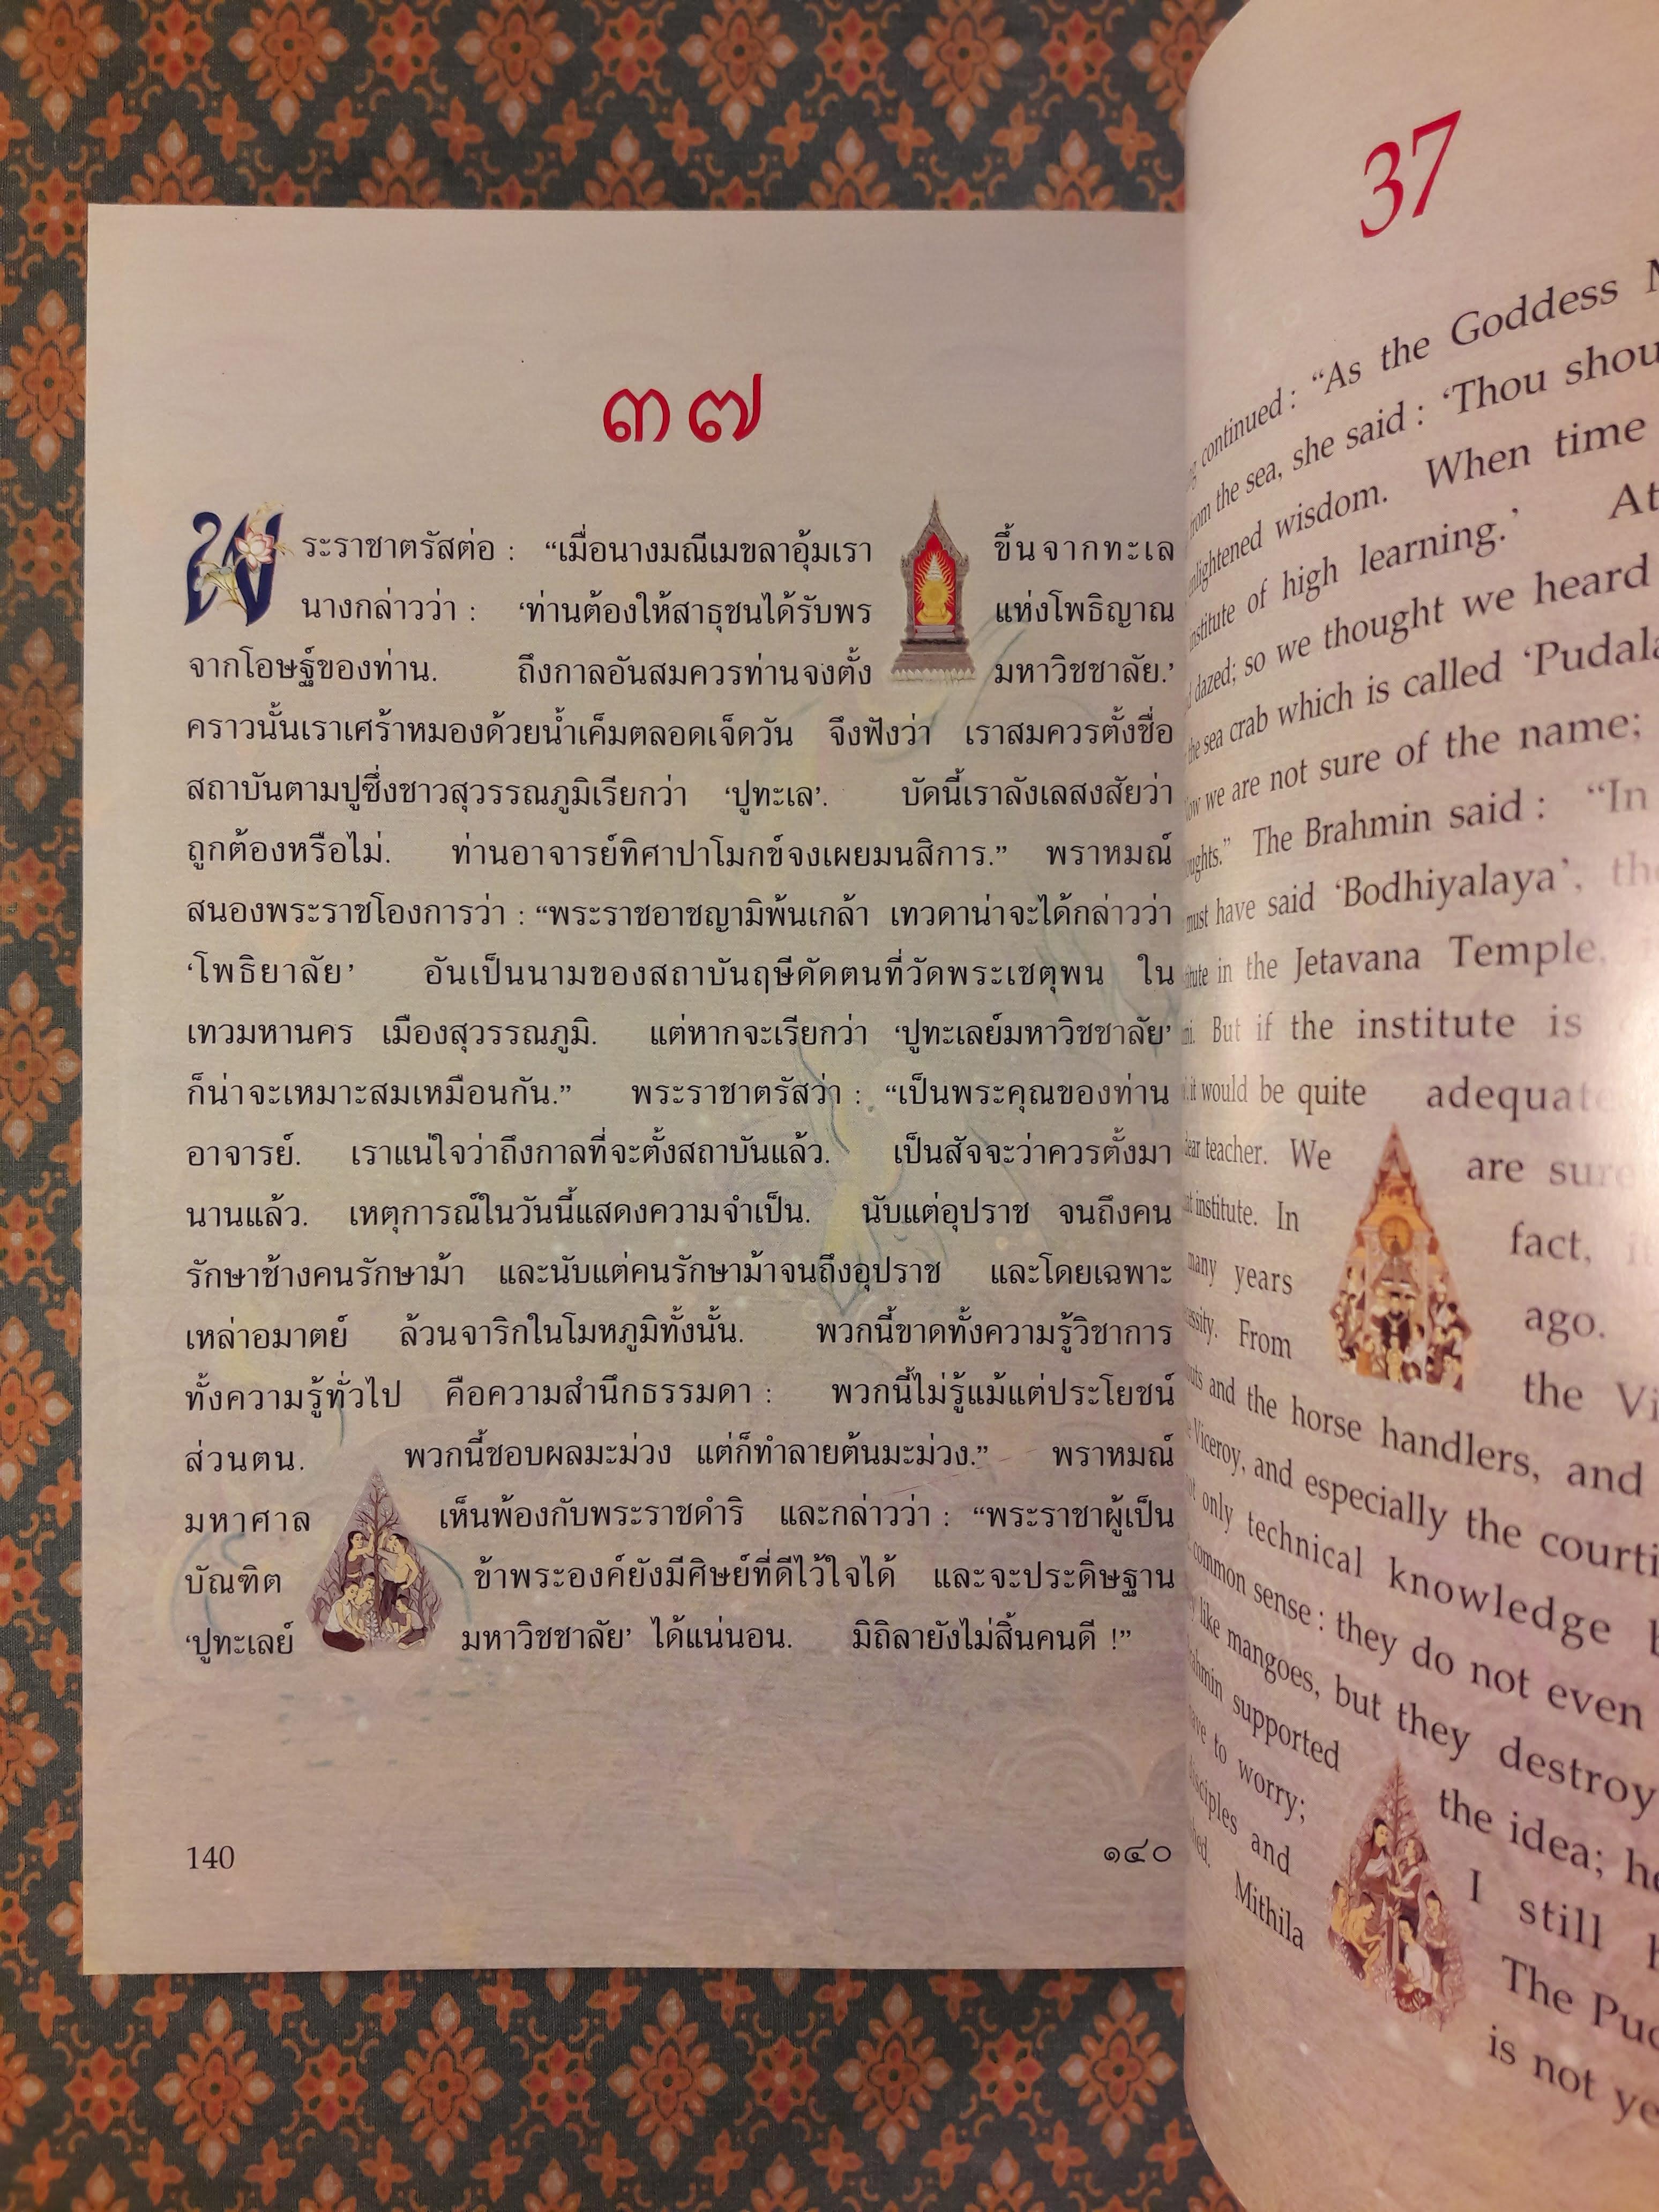 ๓๗
พระราชาตรัสต่อ : “เมื่อนางมณีเมขลาอุ้มเรา ขึ้นจากทะเล
นางกล่าวว่า : ‘ท่านต้องให้สาธุชนได้รับพร แห่งโพธิญาณ
จากโอษฐ์ของท่าน. ถึงกาลอันสมควรท่านจงตั้ง มหาวิชชาลัย.’
คราวนั้นเราเศร้าหมองด้วยน้ำเค็มตลอดเจ็ดวัน จึงฟังว่า เราสมควรตั้งชื่อ
สถาบันตามปูซึ่งชาวสุวรรณภูมิเรียกว่า ‘ปูทะเล’. บัดนี้เราลังเลสงสัยว่า
ถูกต้องหรือไม่. ท่านอาจารย์ทิศาปาโมกข์จงเผยมนสิการ.” พราหมณ์
สนองพระราชโองการว่า : “พระราชอาชญามิพ้นเกล้า เทวดาน่าจะได้กล่าวว่า
‘โพธิยาลัย’ อันเป็นนามของสถาบันฤษีดัดตนที่วัดพระเชตุพน ใน
เทวมหานคร เมืองสุวรรณภูมิ. แต่หากจะเรียกว่า ‘ปูทะเลย์มหาวิชชาลัย’
ก็น่าจะเหมาะสมเหมือนกัน.” พระราชาตรัสว่า : “เป็นพระคุณของท่าน
อาจารย์. เราแน่ใจว่าถึงกาลที่จะตั้งสถาบันแล้ว. เป็นสัจจะว่าควรตั้งมา
นานแล้ว. เหตุการณ์ในวันนี้แสดงความจำเป็น. นับแต่อุปราช จนถึงคน
รักษาช้างคนรักษาม้า และนับแต่คนรักษาม้าจนถึงอุปราช และโดยเฉพาะ
เหล่าอมาตย์ ล้วนจาริกในโมหภูมิทั้งนั้น. พวกนี้ขาดทั้งความรู้วิชาการ
ทั้งความรู้ทั่วไป คือความสำนึกธรรมดา : พวกนี้ไม่รู้แม้แต่ประโยชน์
ส่วนตน. พวกนี้ชอบผลมะม่วง แต่ก็ทำลายต้นมะม่วง.” พราหมณ์
มหาศาล เห็นพ้องกับพระราชดำริ และกล่าวว่า : “พระราชาผู้เป็น
บัณฑิต ข้าพระองค์ยังมีศิษย์ที่ดีไว้ใจได้ และจะประดิษฐาน
‘ปูทะเลย์ มหาวิชชาลัย’ ได้แน่นอน. มิถิลายังไม่สิ้นคนดี !”
140 ๑๔๐
37
continued : “As the Goddess
from the sea, she said : ‘Thou
wisdom. When time
institute of high learning.’ At
dazed; so we thought we heard
the sea crab which is called
we are not sure of the name;
The Brahmin said : “In
must have said ‘Bodhiyalaya’,
in the Jetavana Temple,
But if the institute is
it would be quite
teacher. We are
institute. In fact,
many years ago.
From the
and the horse handlers, and
Viceroy, and especially the
only technical knowledge
common sense : they do not even
like mangoes, but they destroy
supported the idea;
to worry; I still
and The
Mithila is not